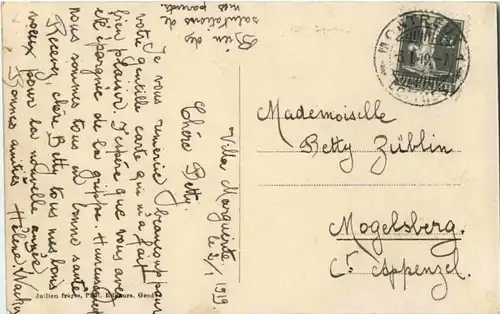 Villa Marguerite
le 2/1 1919
Chère Betty.
Je vous remercie beaucoup pour
votre gentille carte qui m'a fait
bien plaisir. J'espère que vous avez
été épargnée de la grippe. Heureusement
nous sommes tous en bonne santé
Recevez, chère Betty tous mes bons
voeux pour la nouvelle année.
Bonnes amitiés Hélène
Bien des
salutations de
mes parents.
Mademoiselle
Betty Züblin
Mogelsberg.
Ct. Appenzel.
MONTREUX
Jullien frères, Phot. Editeurs. Genève